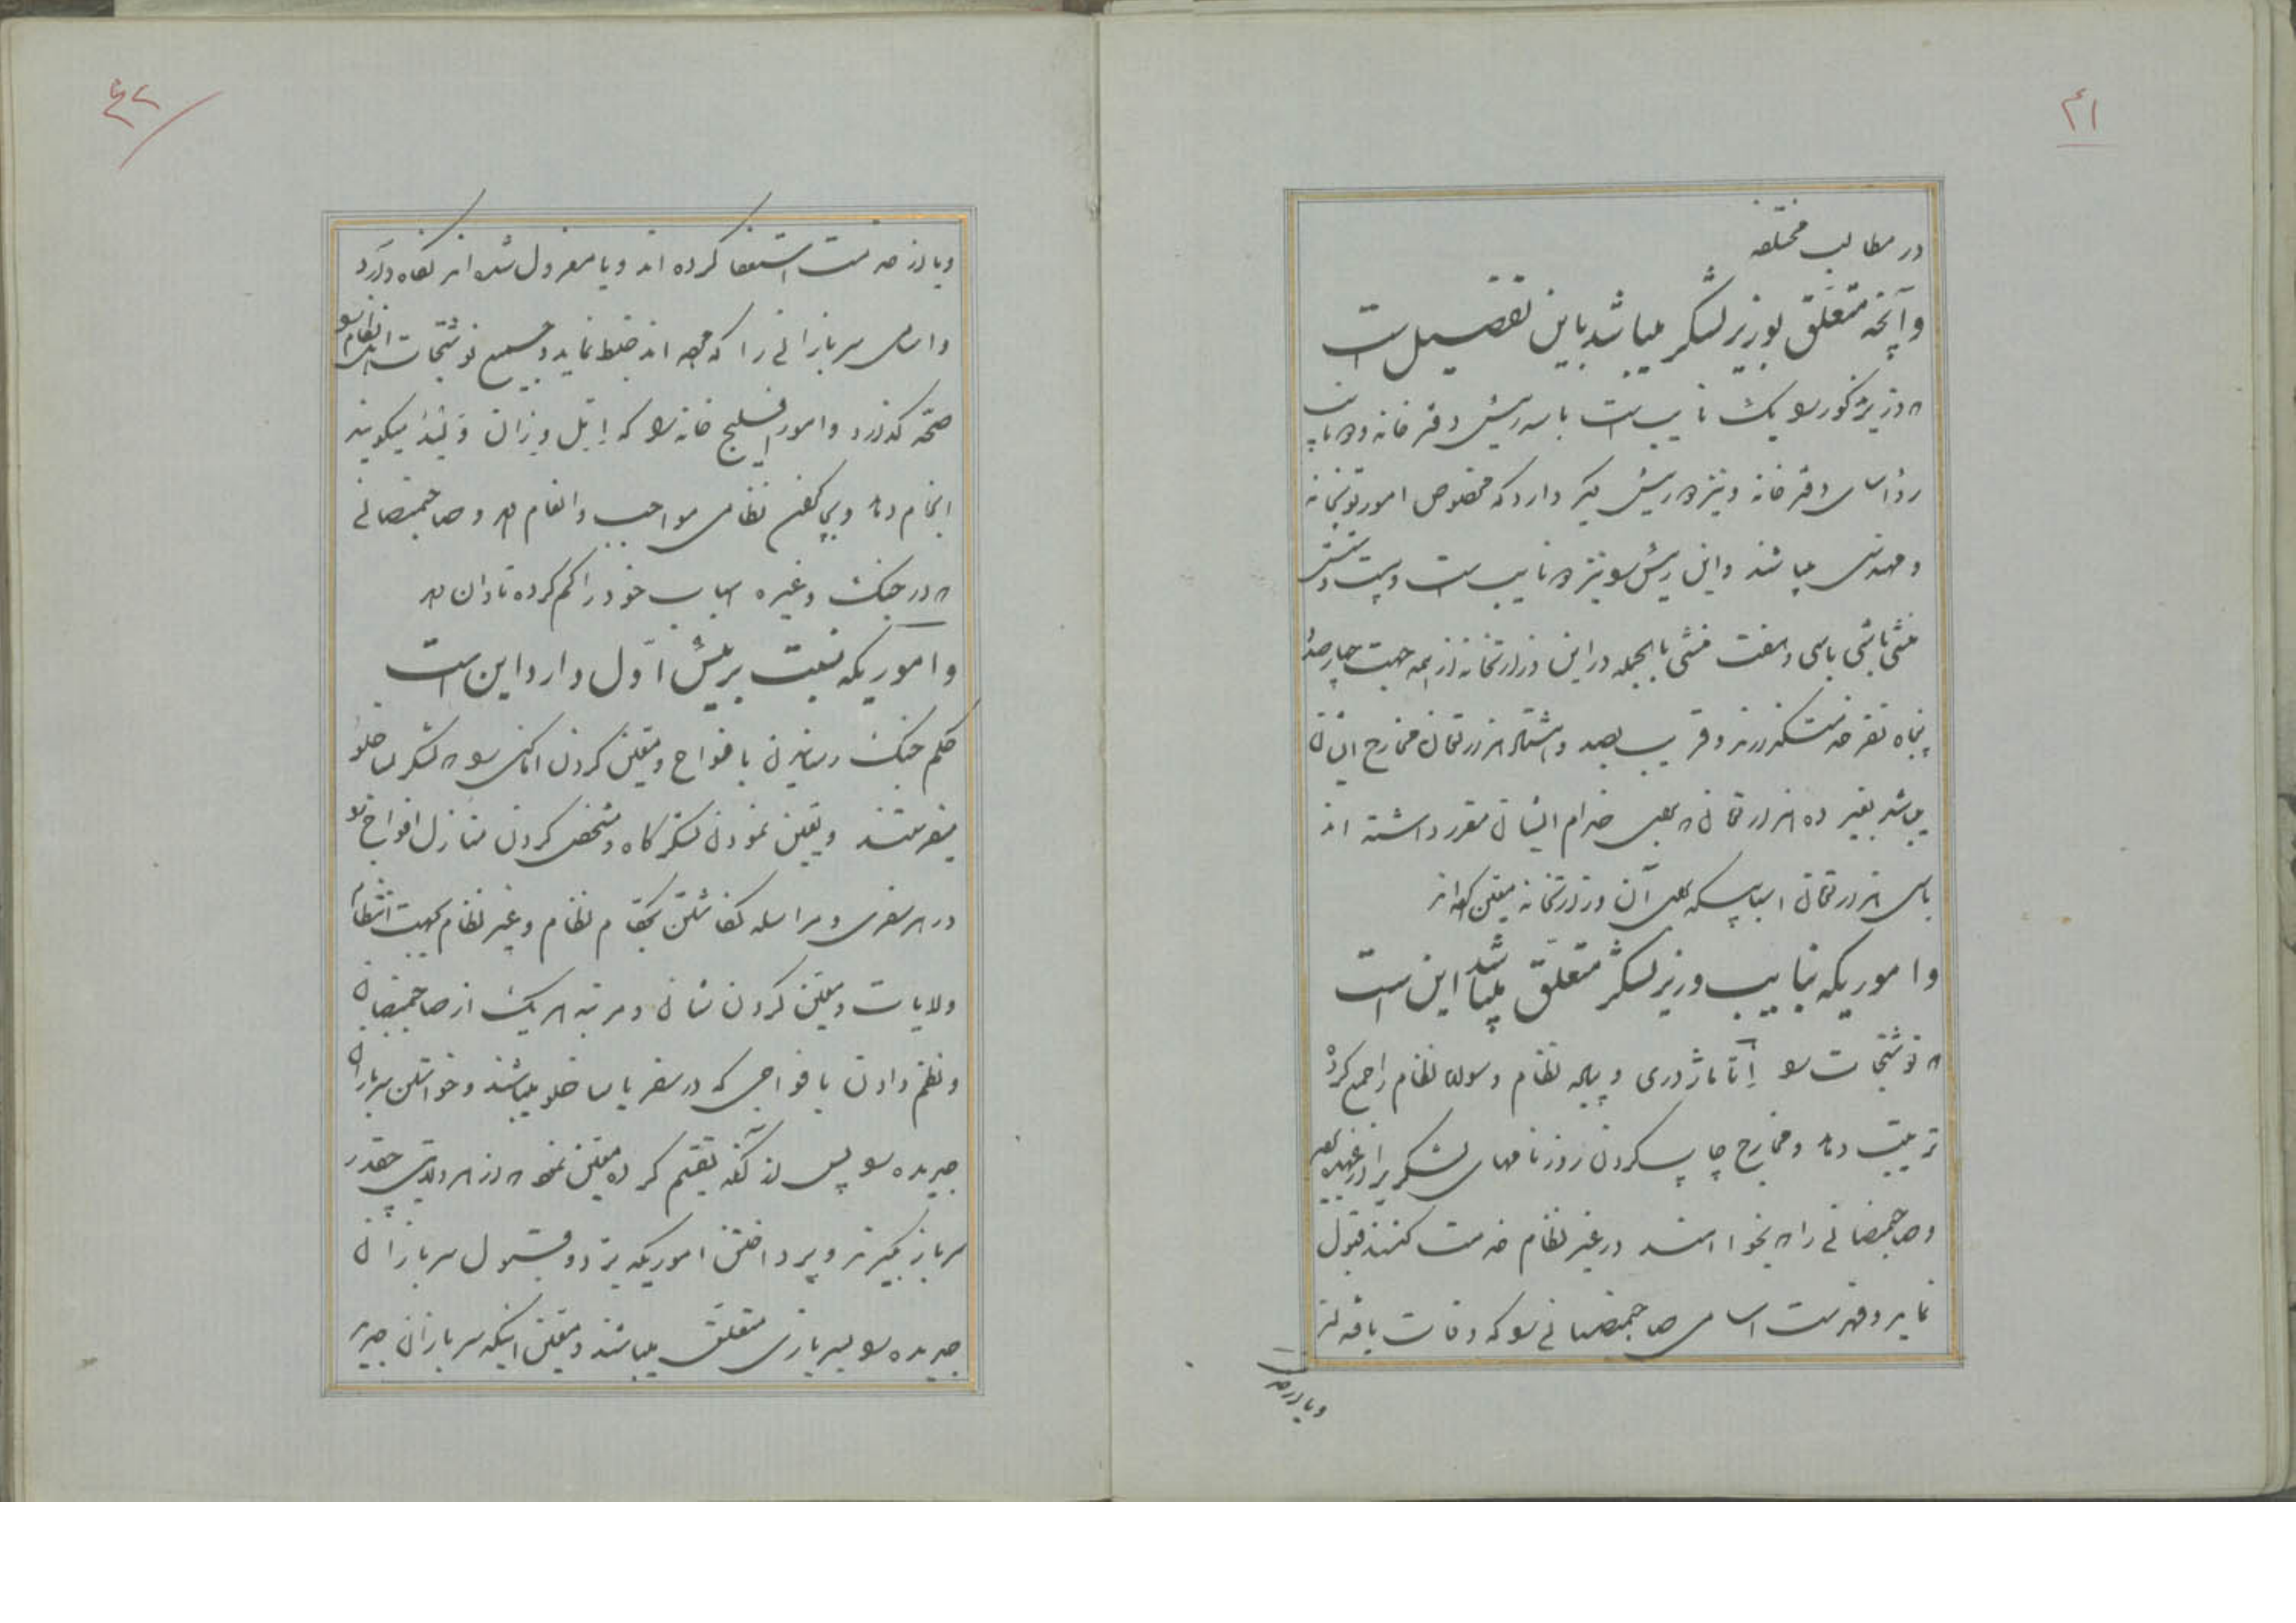 ۴۱
در مطالب مختلفه
و آنچه متعلق بوزیر لشکر میباشد باین تفصیل است
وزیر مذکور یک نایب است با سه رییس دفترخانه و
رؤسای دفترخانه و نیز رییس دیگر دارد که مخصوص امور توپخانه
و مهندسی میباشد و این رییس نیز نایب است و بیست و شش
منشی باشی با سی و هفت منشی بالجمله در این وزارتخانه از همه جهت چهارصد و
پنجاه نفر خدمتگذارند و قریب بصد و هشتاد هزار تومان مخارج ایشان
میباشد بغیر ده هزار تومان بجهت خدام ایشان مقرر داشته اند
با سی هزار تومان اسبابیکه بجهت آن وزارتخانه معین کرده‌اند
و اموریکه بنایب وزیر لشکر متعلق میباشد این است
نوشتجات اتاماژوری و پیاده نظام و سواره نظام را جمع کرده
ترتیب دهد و مخارج چاپ کردن روزنامهای لشکر را
و صاحبمنصبانی را بخواهند در غیر نظام خدمت کنند قبول
نماید و فهرست اسامی صاحبمنصبانی که وفات یافته اند
و یا از خدمت
۴۲
و یا از خدمت استعفا کرده اند و یا معزول شده اند نگاه دارد
و اسامی سربازانی را که مرده اند ضبط نماید و جمیع نوشتجات
صحه گذارد و امور خانه که اتیل دیزان ولید میگویند
انجام دهد و به نظامی مواجب و انعام دهد و صاحبمنصبانی
در جنگ و غیره اسباب خود را گم کرده تاوان دهد
و اموریکه نسبت برییس اول دارد این است
حکم جنگ رسانیدن بافواج و معین کردن اماکنی لشکر ساخلو
میفرستند و تعیین نمودن لشکرگاه و مشخص کردن منازل افواج
در هر سفری و مراسله نگاشتن بحکام نظام و غیر نظام بجهت انتظام
ولایات و معین کردن شان و مرتبه هر یک از صاحبمنصبان
و نظم دادن بافواجی که در سفر یا ساخلو میباشند و خواستن سربازان
جریده پس از آنکه تقسیم کرده معین نموده از هر ولایتی چقدر
سرباز بگیرند و پرداختن اموریکه برد و قبول سربازان
جریده بسربازی متعلق میباشند و معین اینکه سربازان جریده